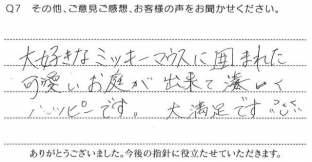 Q7 その他、ご意見ご感想、お客様の声をお聞かせください。
大好きなミッキーマウスに囲まれた
可愛いお庭が出来て凄いく
ハッピーです。 大満足です
ありがとうございました。今後の指針に役立たせていただきます。